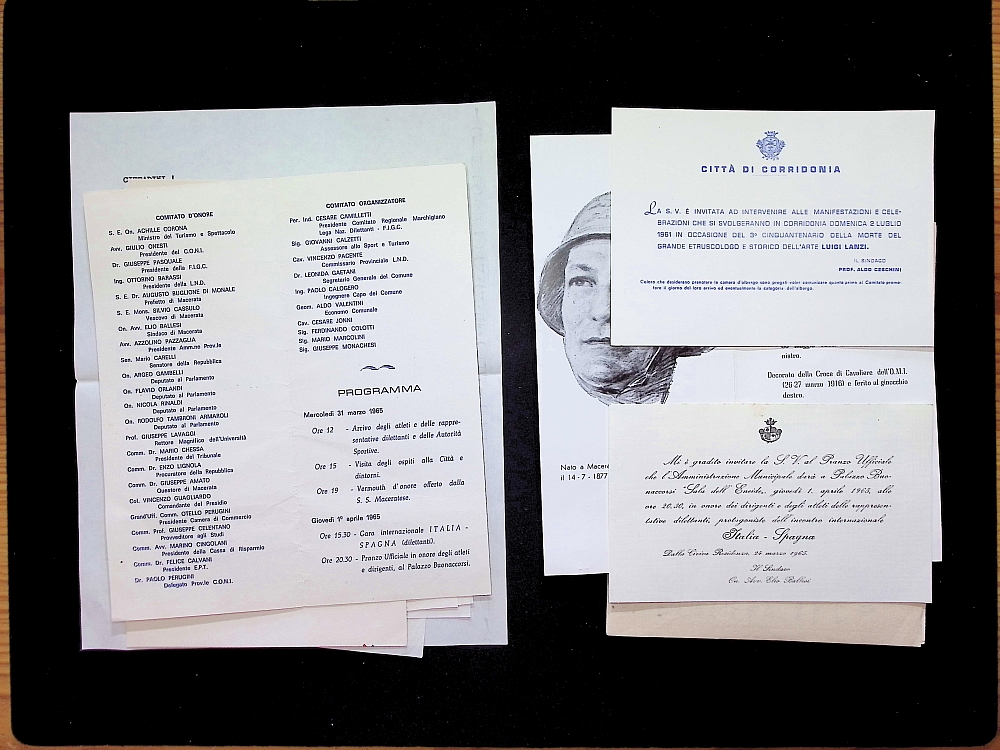 COMITATO D'ONORE
S. E. On. ACHILLE CORONA
Ministro del Turismo e Spettacolo
Avv. GIULIO ONESTI
Presidente del C.O.N.I.
Dr. GIUSEPPE PASQUALE
Presidente della F.I.G.C.
Ing. OTTORINO BARASSI
Presidente della L.N.D.
S. E. Dr. AUGUSTO BUGLIONE DI MONALE
Prefetto di Macerata
S. E. Mons. SILVIO CASSULO
Vescovo di Macerata
On. Avv. ELIO BALLESI
Sindaco di Macerata
Avv. AZZOLINO PAZZAGLIA
Presidente Amm.ne Prov.le
Sen. Mario CARELLI
Senatore della Repubblica
On. ARGEO GAMBELLI
Deputato al Parlamento
On. FLAVIO ORLANDI
Deputato al Parlamento
On. NICOLA RINALDI
Deputato al Parlamento
On. RODOLFO TAMBRONI ARMAROLI
Deputato al Parlamento
Prof. GIUSEPPE LAVAGGI
Rettore Magnifico dell'Università
Comm. Dr. MARIO CHESSA
Presidente del Tribunale
Comm. Dr. ENZO LIGNOLA
Procuratore della Repubblica
Comm. Dr. GIUSEPPE AMATO
Questore di Macerata
Col. VINCENZO GUAGLIARDO
Comandante del Presidio
Grand'Uff. Comm. OTELLO PERUGINI
Presidente Camera di Commercio
Comm. Prof. GIUSEPPE CELENTANO
Provveditore agli Studi
Comm. Avv. MARINO CINGOLANI
Presidente della Cassa di Risparmio
Comm. Dr. FELICE CALVANI
Presidente E.P.T.
Dr. PAOLO PERUGINI
Delegato Prov.le C.O.N.I.
COMITATO ORGANIZZATORE
Per. Ind. CESARE CAMILLETTI
Presidente Comitato Regionale Marchigiano
Lega Naz. Dilettanti - F.I.G.C.
Sig. GIOVANNI CALZETTI
Assessore allo Sport e Turismo
Cav. VINCENZO PACENTE
Commissario Provinciale L.N.D.
Dr. LEONIDA GAETANI
Segretario Generale del Comune
Ing. PAOLO CALOGERO
Ingegnere Capo del Comune
Geom. ALDO VALENTINI
Economo Comunale
Cav. CESARE JONNI
Sig. FERDINANDO COLOTTI
Sig. MARIO MARCOLINI
Sig. GIUSEPPE MONACHESI
PROGRAMMA
Mercoledì 31 marzo 1965
Ore 12 - Arrivo degli atleti e delle rappre-
sentative dilettanti e delle Autorità
Sportive.
Ore 15 - Visita degli ospiti alla Città e
dintorni.
Ore 19 - Vermouth d'onore offerto dalla
S. S. Maceratese.
Giovedì 1º aprile 1965
Ore 15.30 - Gara internazionale ITALIA -
SPAGNA (dilettanti).
Ore 20.30 - Pranzo Ufficiale in onore degli atleti
e dirigenti, al Palazzo Buonaccorsi.
CITTÀ DI CORRIDONIA
La S. V. È INVITATA AD INTERVENIRE ALLE MANIFESTAZIONI E CELE-
BRAZIONI CHE SI SVOLGERANNO IN CORRIDONIA DOMENICA 2 LUGLIO
1961 IN OCCASIONE DEL 3º CINQUANTENARIO DELLA MORTE DEL
GRANDE ETRUSCOLOGO E STORICO DELL'ARTE LUIGI LANZI.
IL SINDACO
PROF. ALDO CESCHINI
Coloro che desiderano prenotare la camera d'albergo sono pregati voler comunicare quanto prima al Comitato promo-
tore il giorno del loro arrivo ed eventualmente la categoria dell'albergo.
nistro.
Decorato della Croce di Cavaliere dell'O.M.I.
(26-27 marzo 1916) e ferito al ginocchio
destro.
Nato a Macera
il 14 - 7 - 1877
Mi è gradito invitare la S. V. al Pranzo Ufficiale
che l'Amministrazione Municipale darà a Palazzo Buo-
naccorsi - Sala dell'Eneide, giovedì 1. aprile 1965, alle
ore 20.30, in onore dei dirigenti e degli atleti delle rappresen-
tative dilettanti, protagoniste dell'incontro internazionale
Italia - Spagna
Dalla Civica Residenza, 24 marzo 1965.
Il Sindaco
On. Avv. Elio Ballesi